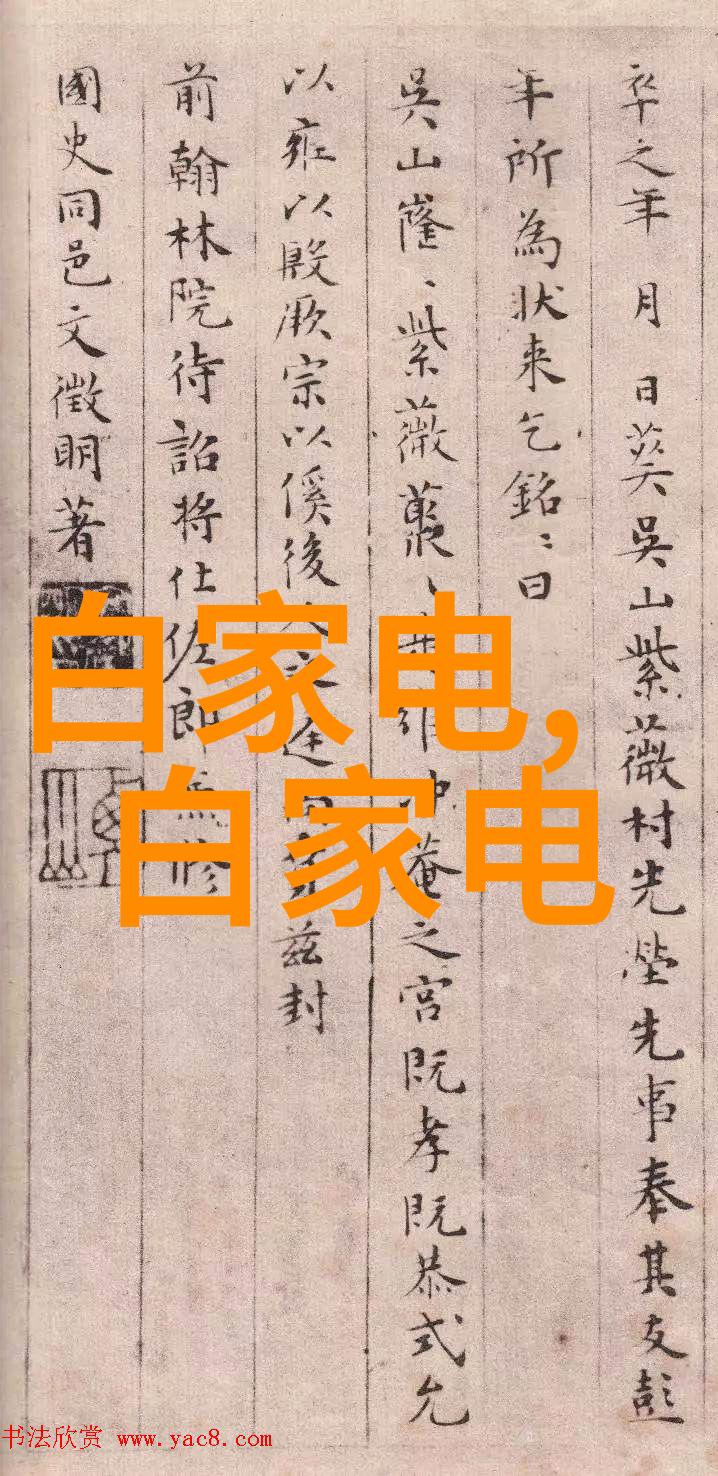 卒之年 月 日葬吳山紫薇村先塋先事奉其友彭
年所為狀来乞銘〻曰
吳山窿〻紫薇叢〻 之宮既孝既恭式允
以雍以殷厥宗以傒後 茲封
前翰林院待詔將仕佐郎 修
國史同邑文徵明著
白家电，
白家电
书法欣赏 www.yac8.com